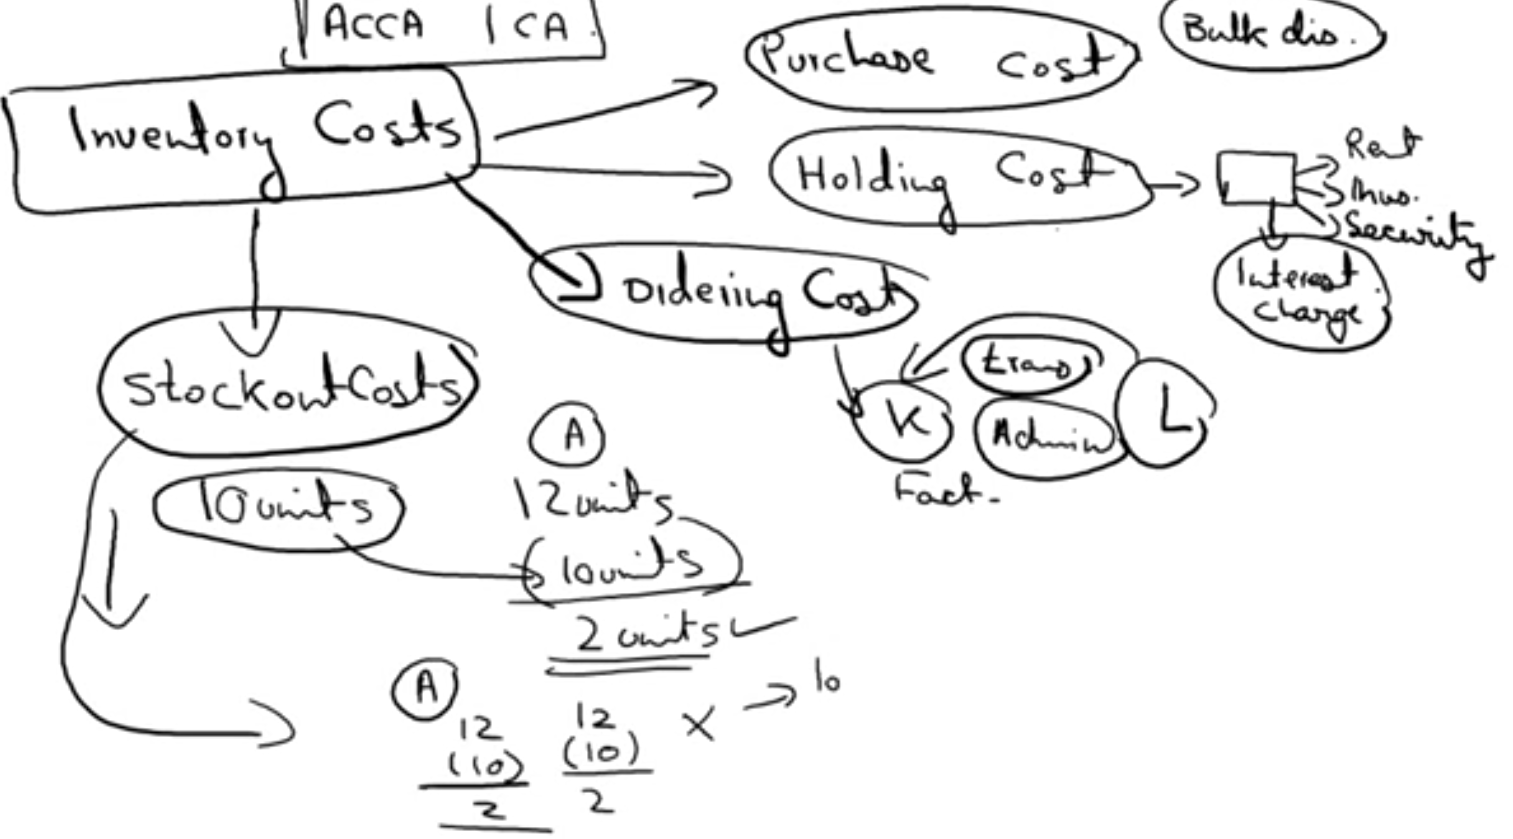 ACCA | CA
Inventory Costs
Purchase Cost
Bulk dis.
Holding Cost
Rent
Security
Interest
charge
Ordering Cost
trans
Admin
K
L
Fact.
Stockout Costs
10 units
A
12 units
10 units
2 units
A
12
(10)
2
12
(10)
2
X → 10